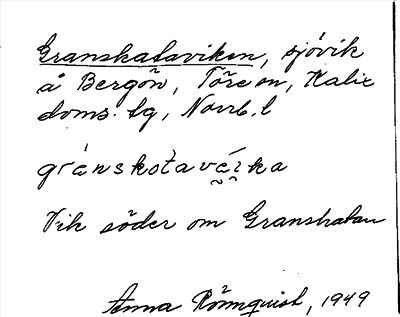 Granskataviken, sjövik
å Bergön, Töre sn, Kalix
doms. lg, Norrb. l
gránskotavei̯ka
Vik söder om Granskatan
Anna Rönnquist, 1949